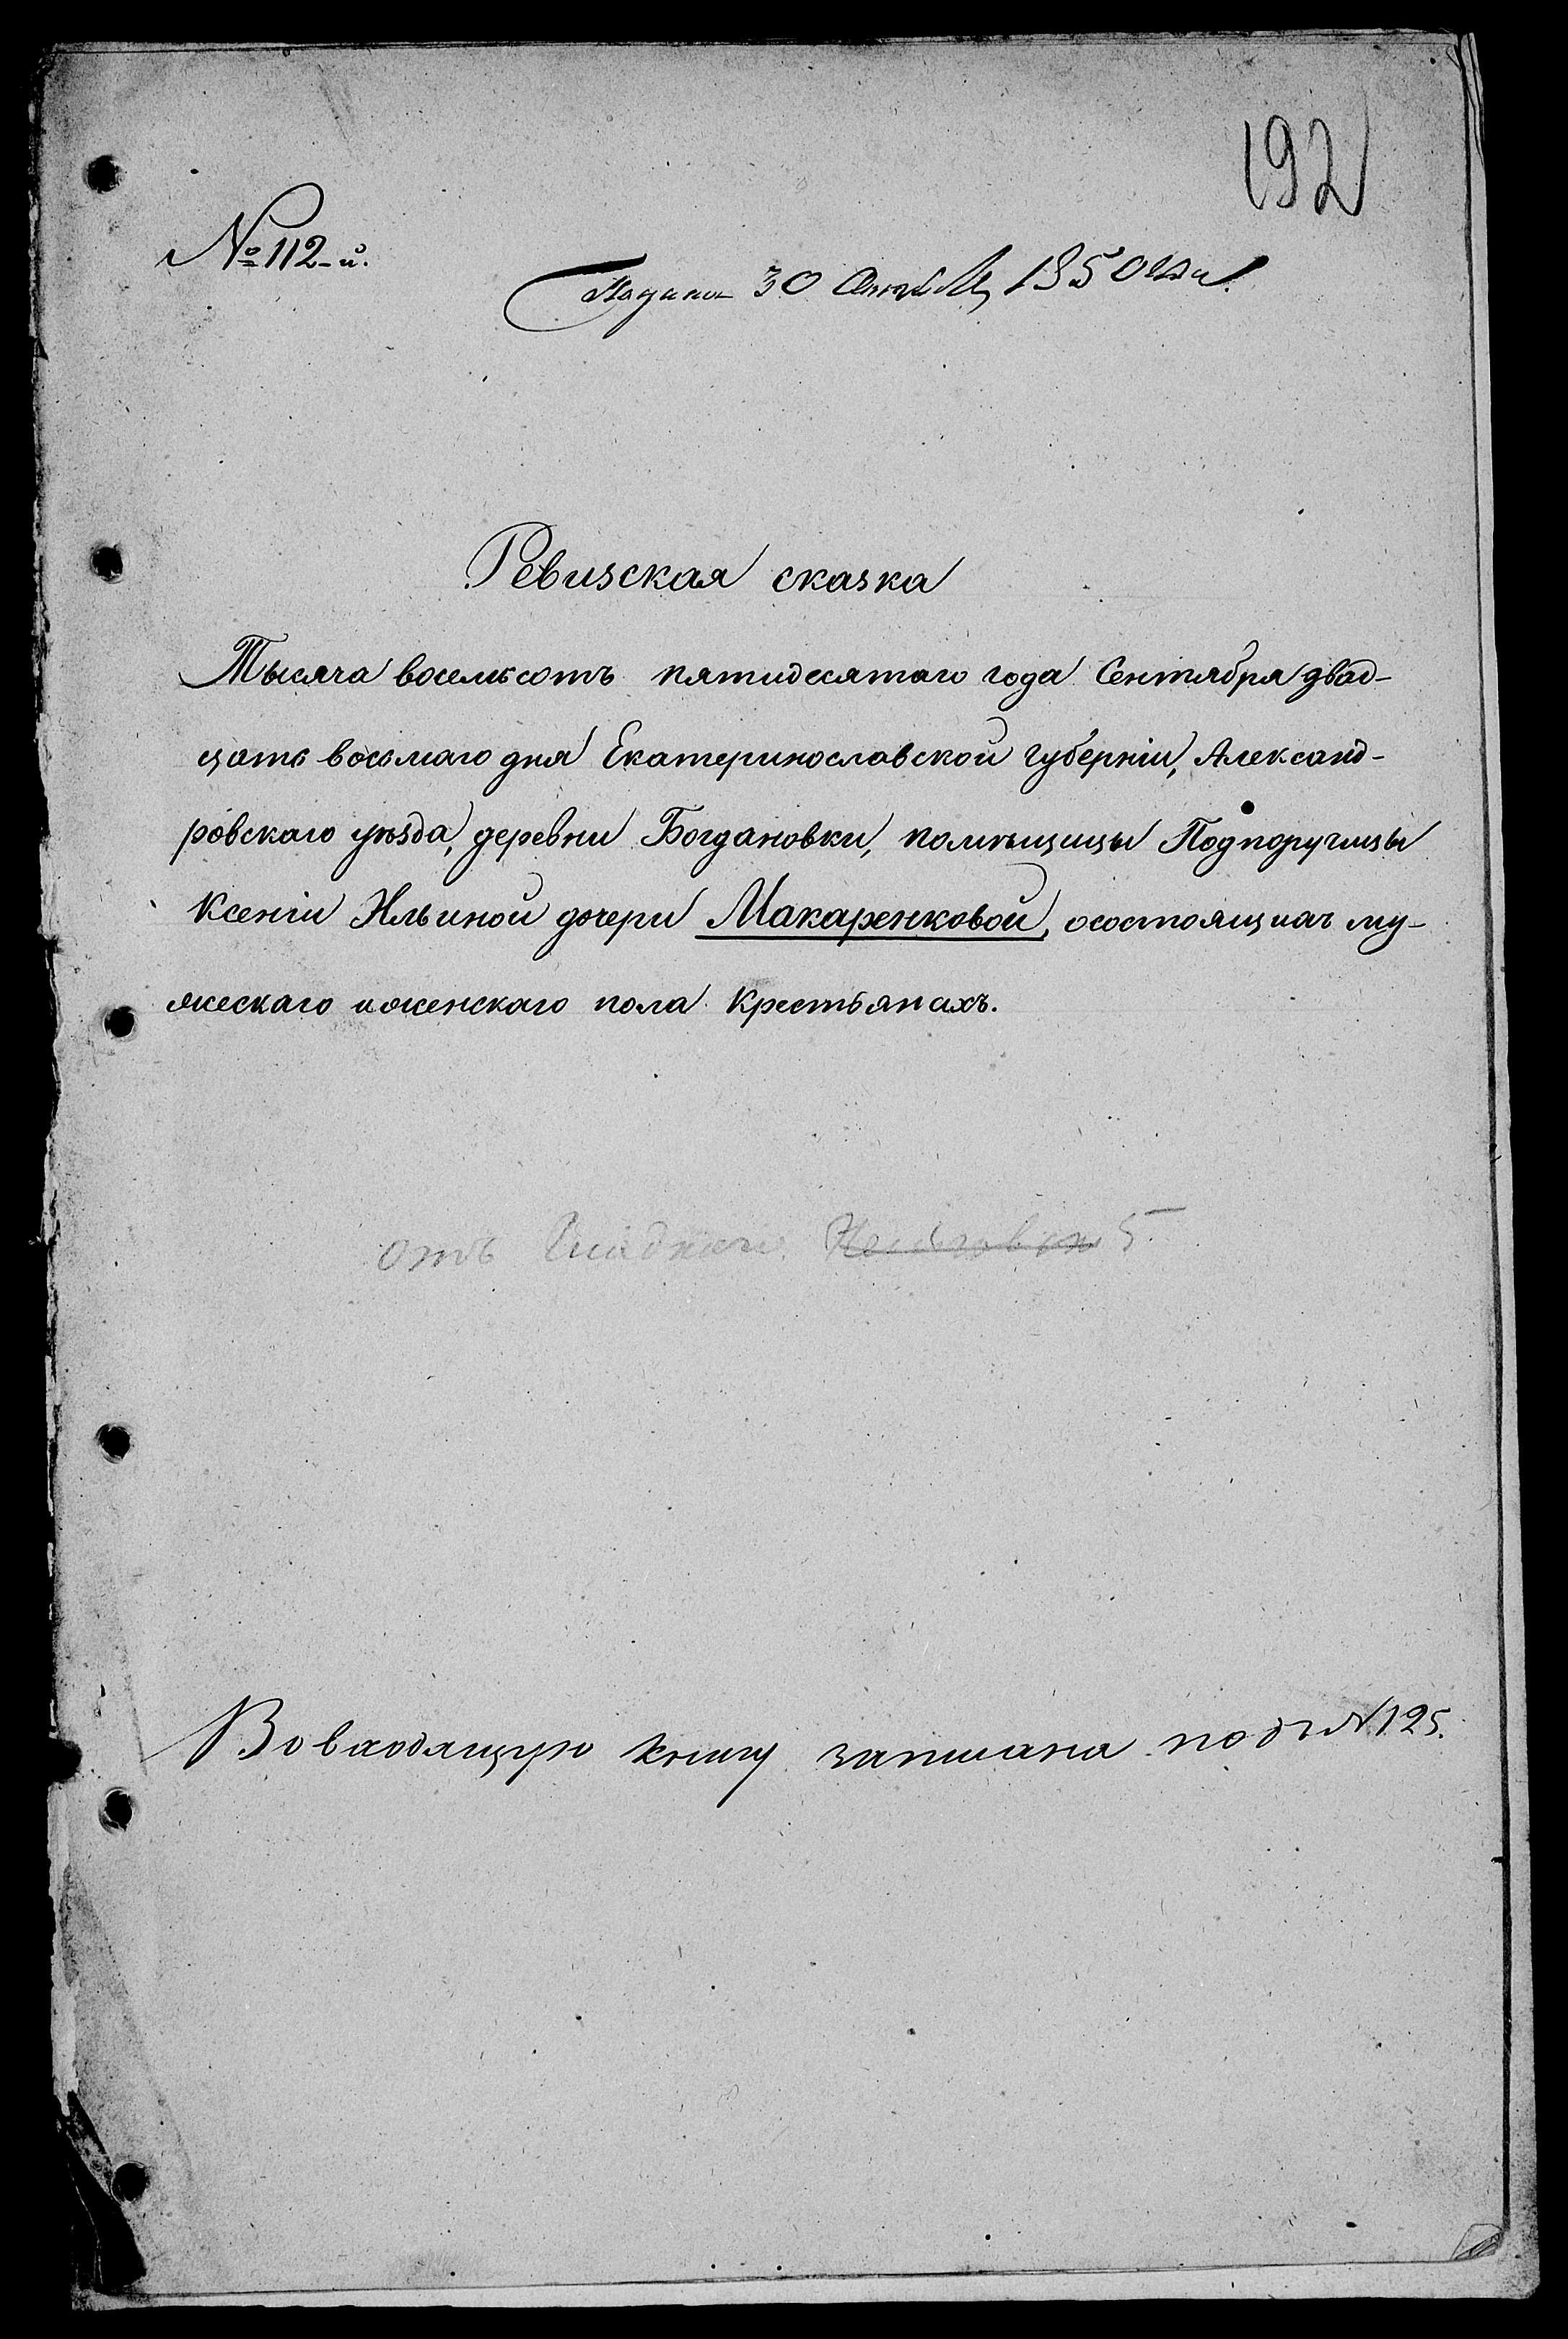 192
№ 112-й.
Подана 30 Октября 1850 года.
Ревизская сказка
Тысяча восемьсотъ пятидесятаго года Сентября двад-
цать восьмаго дня Екатеринославской губерніи, Александ-
ровскаго уѣзда, деревни Богдановки, помѣщицы Подпоручицы
Ксеніи Ильиной дочери Макаренковой, осостоящихъ му-
жескаго иженскаго пола крестьянахъ.
отъ
Во входящую книгу записана подъ № 125.